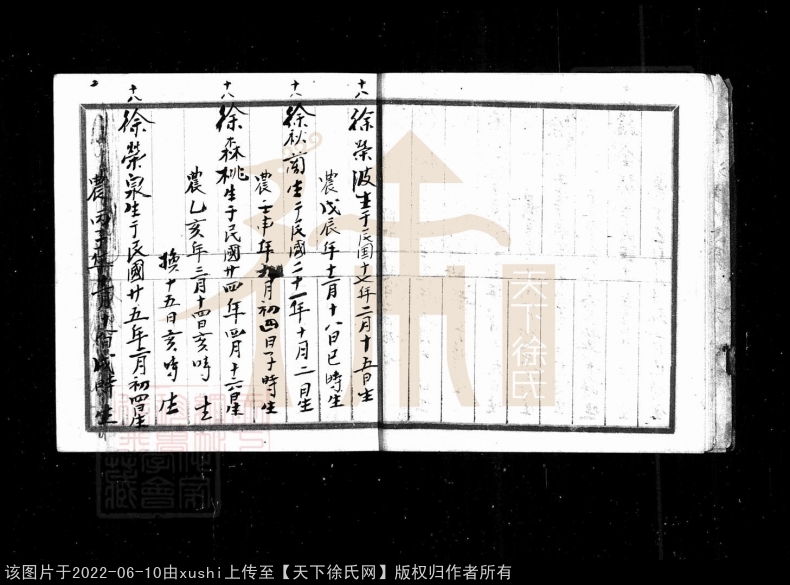 十八徐榮波生于民国十七年二月十五日生
農戊辰年十二月十八日巳時生
十八徐秋蘭生于民國二十一年十月二日生
農壬申年九月初四日子時生
十八徐森桃生于民國廿四年四月十六日生
農乙亥年三月十四日亥時生
換十五日亥時生
十八徐榮泉生于民國廿五年二月初四日生
農丙子年
戌時生
天下徐氏
该图片于2022-06-10由xushi上传至【天下徐氏网】版权归作者所有